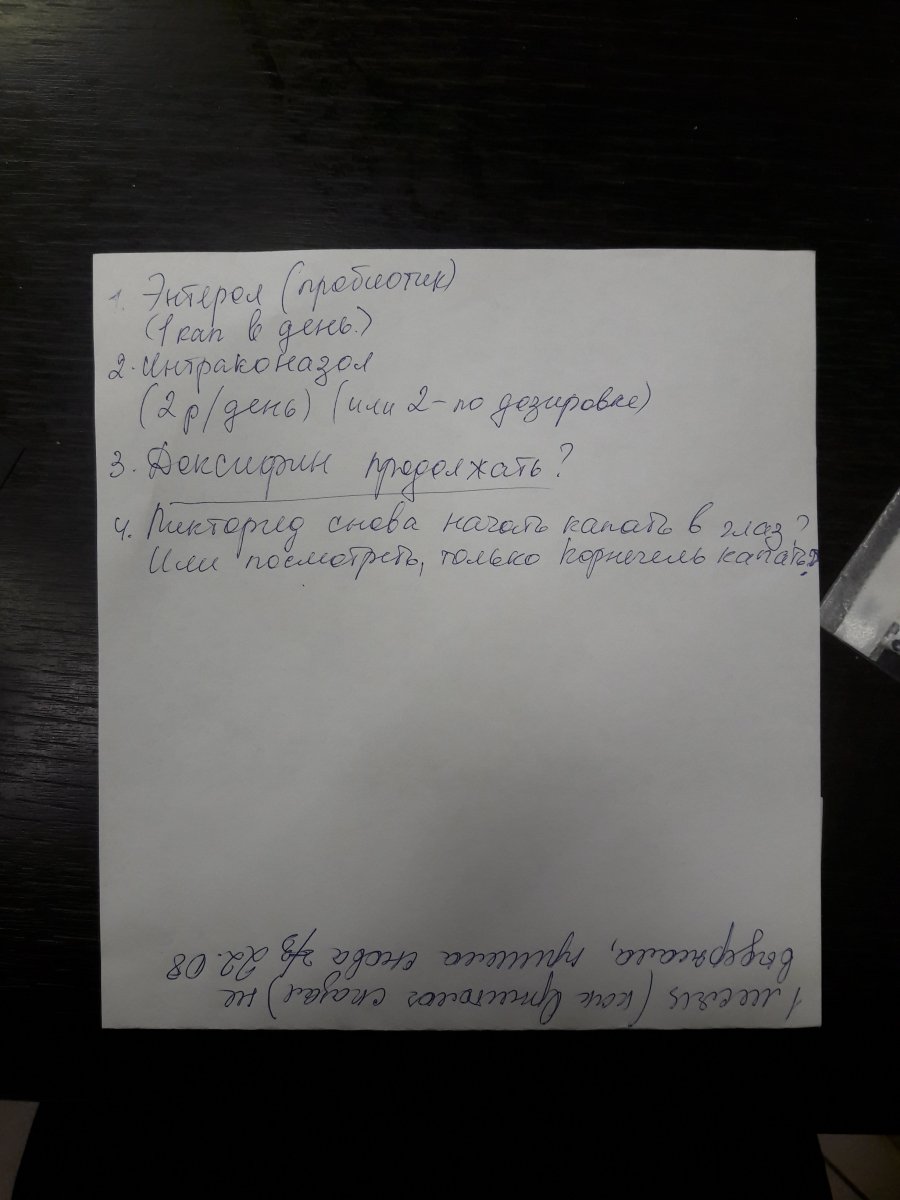 1. Энтерол (пробиотик)
(1 кап в день.)
2. Интраконазол
(2 р/день) (или 2-по дозировке)
3. Доксифин продолжать?
4. Пикторгед снова начать капать в глаз?
Или посмотреть, только Корнегель капать?
1 месяц (как Вринголог сказал) не
выдержала, пришла снова 22.08